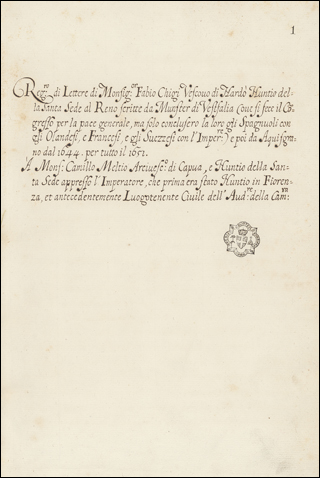 1
Reg.ro di Lettere di Monsig.r Fabio Chigi Vescovo di Nardò Nuntio del-
la Santa Sede al Reno scritte da Munster di Vestfalia (ove si fece il Cõ-
gresso per la pace generale, ma solo conclusero la loro gli Spagnuoli con
gli Olandesi, e Francesi, e gli Suezzesi con l'Imper.re) e poi da Aquisgra-
no dal 1644. per tutto il 1651.
A Mons.r Camillo Meltio Arcivesc.o di Capua, e Nuntio della San-
ta Sede appresso l'Imperatore, che prima era stato Nuntio in Fioren-
za, et antecedentemente Luogotenente Civile dell'Aud.re della Cam.ra